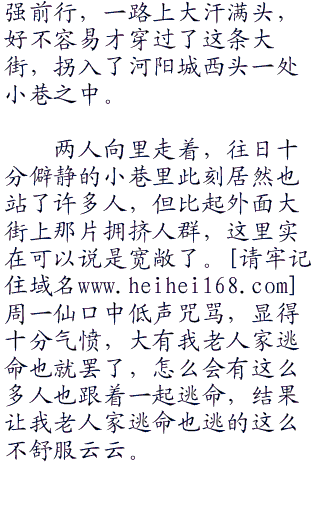 强前行，一路上大汗满头，
好不容易才穿过了这条大
街，拐入了河阳城西头一处
小巷之中。
两人向里走着，往日十
分僻静的小巷里此刻居然也
站了许多人，但比起外面大
街上那片拥挤人群，这里实
在可以说是宽敞了。[请牢记
住域名www.heihei168.com]
周一仙口中低声咒骂，显得
十分气愤，大有我老人家逃
命也就罢了，怎么会有这么
多人也跟着一起逃命，结果
让我老人家逃命也逃的这么
不舒服云云。